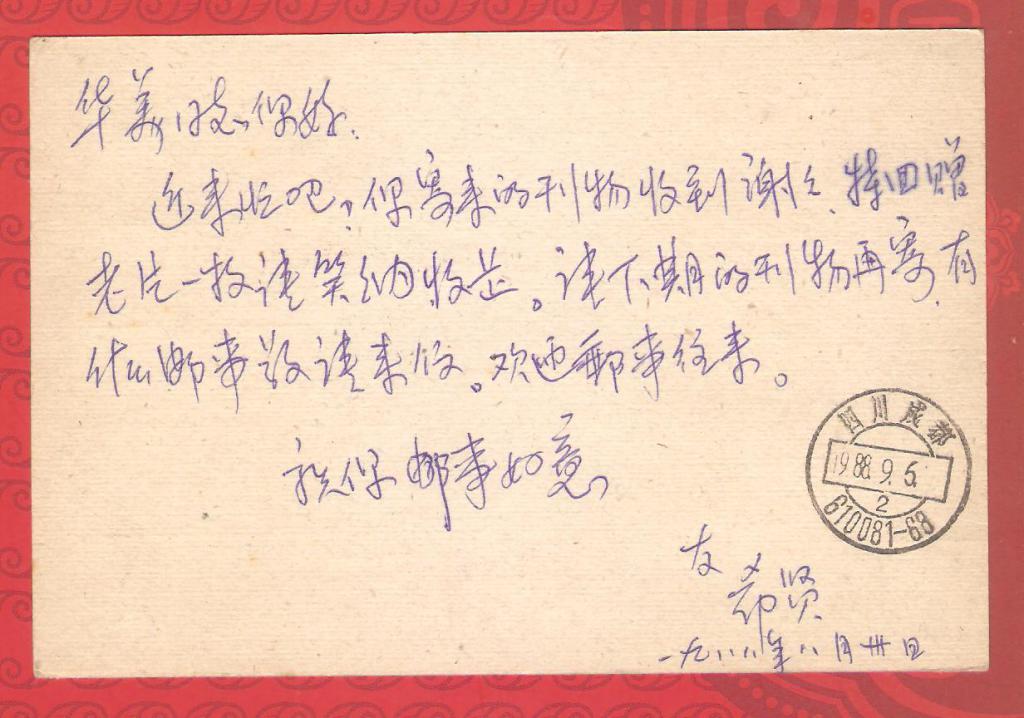 华美同志你好.
近来忙吧,你寄来的刊物收到谢谢.特回赠
老片一枚请笑纳收芷。请下期的刊物再寄.有
什么邮事敬请来仮。欢迎邮事往来。
祝你邮事如意
友
希贤
一九八八年八月卅日
四川成都
1988.9.5.
2
610081-68